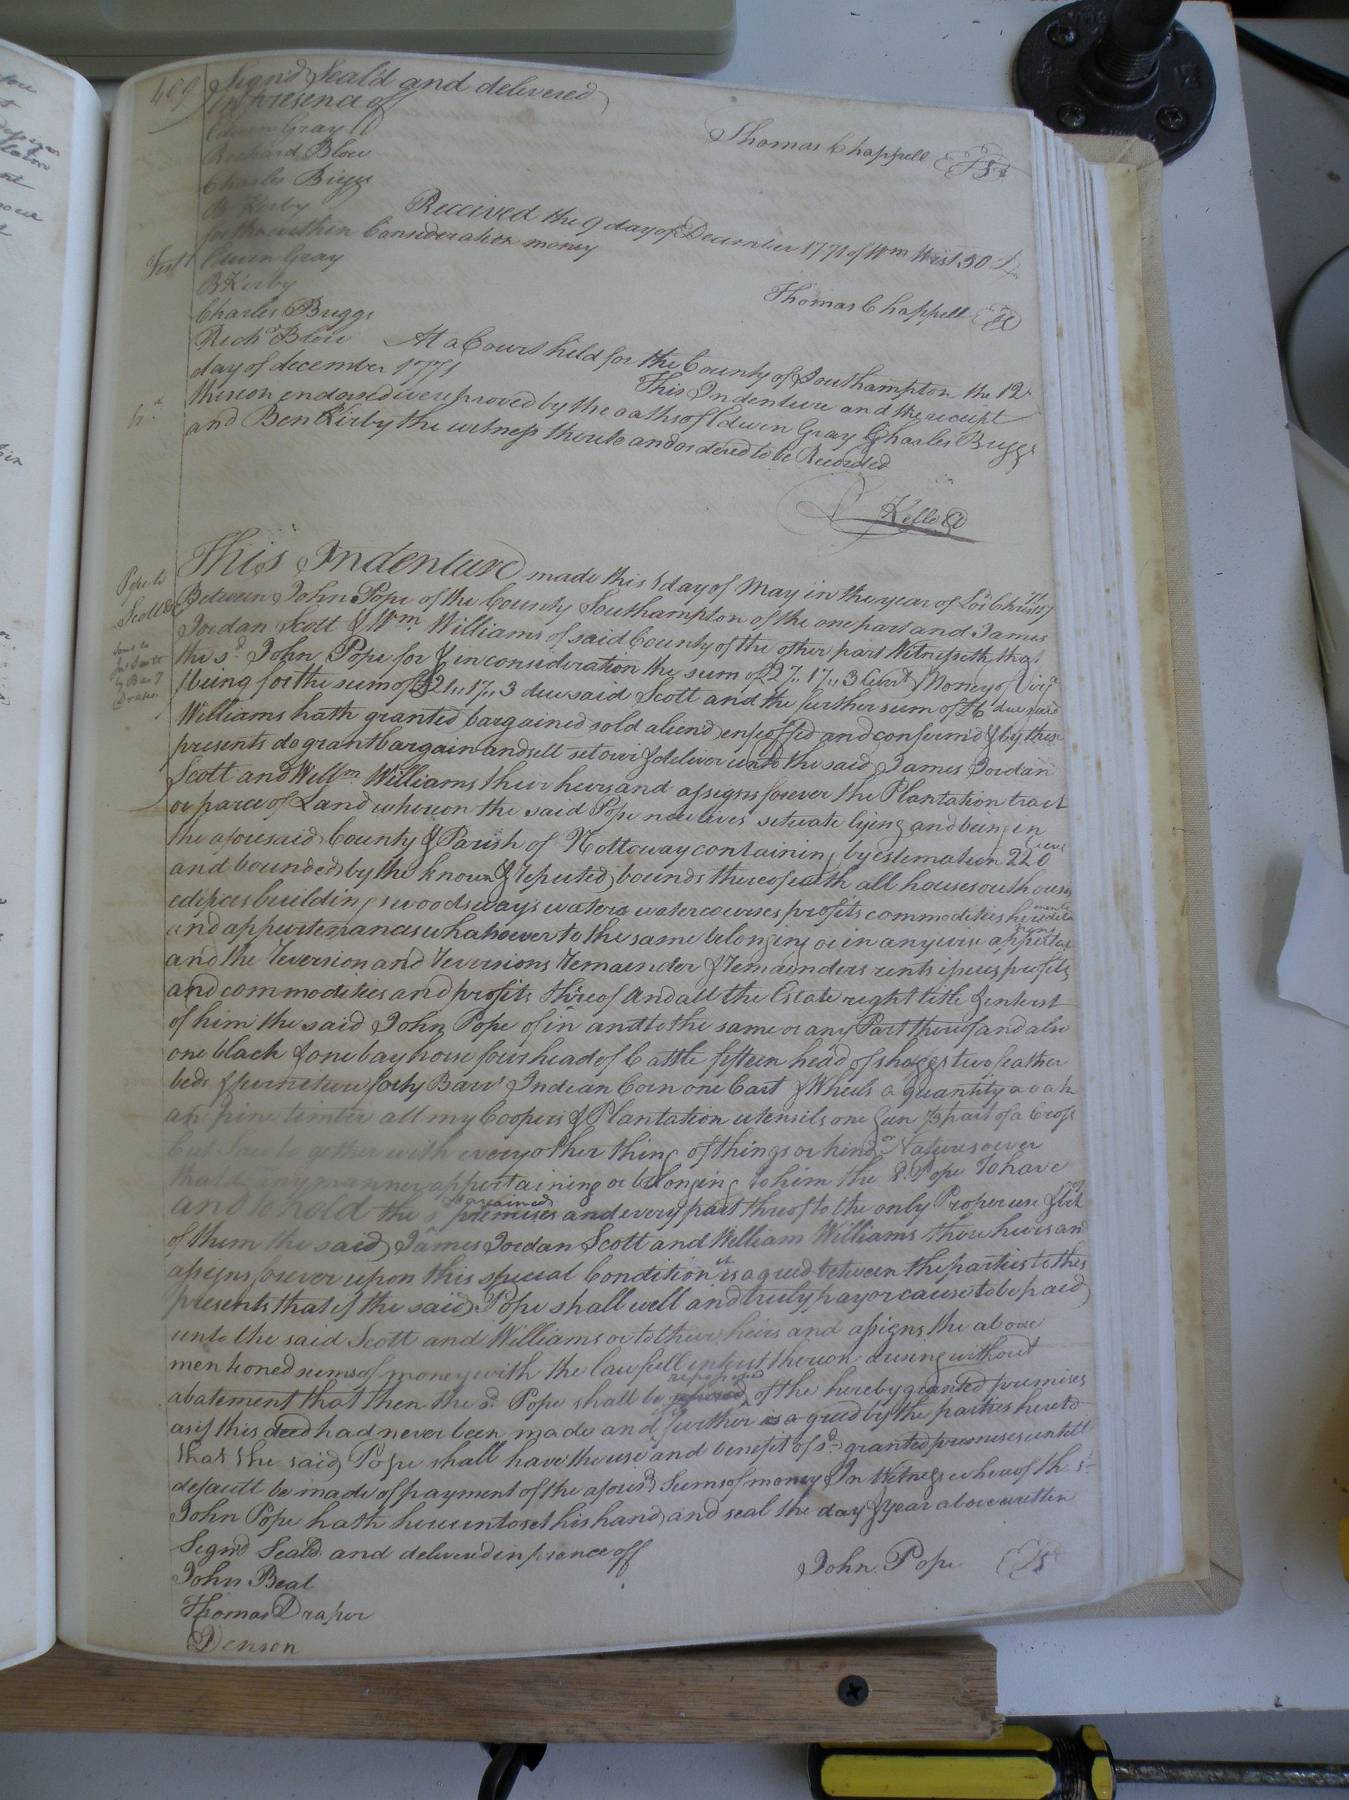 409
Signd Seal'd and delivered
in presence of
Edwin Gray
Thomas Chappell LS
Richard Blow
Charles Briggs
B Kirby
Received the 9 day of December 1771 of Wm West 50 £
for the within Consideration money
Test Edwin Gray
B Kirby
Thomas Chappell
Charles Briggs
Richd Blow At a Court held for the County of Southampton the 12
day of december 1771 This Indenture and the receipt
thereon endorsed were proved by the oaths of Edwin Gray Charles Briggs
and Ben Kirby the witness thereto and ordered to be Recorded
Pope to
Scott &
This Indenture made this 1 day of May in the year of Lod Christ
Between John Pope of the County Southampton of the one part and James
Jordan Scott & Wm Williams of said County of the other part Witnesseth that
the sd John Pope for & in consideration the sum of 17,, 3 Money of Virga
being for the sum of 21,, 17,, 3 due said Scott and the further sum of £6 due said
Williams hath granted bargained sold aliend enfeoffed and confirmd & by these
presents do grant bargain and sell set over & deliver unto the said James Jordan
Scott and Willm Williams their heirs and assigns forever the Plantation tract
or parcel of Land whereon the said Pope now lives setuate lying and being in
the aforesaid County & Parish of Nottoway containing by estemation 220 acres
and bounded by the known & reputed bounds thereof with all houses outhouses
edifices building woods ways waters watercourses profits commodities heredita ments
and appurtenances whatsoever to the same belonging or in anywise appertaining
and the reversion and reversions remainder & remainders rents issues profits
and commodities and profits thereof And all the Estate right title & intrest
of him the said John Pope of in and to the same or any Part thereof and also
one black & one bay horse four head of Cattle fifteen head of shoggs two feather
beds & furneture forty Barrs Indian Corn one Cart & Wheels a quantity
pine timber all my Coopers & Plantation utensils one Gun part of a Cross
cut Saw together with every other thing of things or kind or Nature soever
that in any manner appertaining or belonging to him the sd Pope To have
and to hold the s bargained premises and every part threof to the only Proper use &
of them the said James Jordan Scott and William Williams there heirs and
assigns forever upon this special Condition it is agreed between the parties to thes
presents that if the said Pope shall well and truly pay or cause to be paid
unto the said Scott and Williams or to their heirs and assigns the above
mentioned sums of money with the lawfull intrest thereon dureing without
abatement that then the sd Pope shall be of the hereby granted premises
as if this deed had never been made and further is agreed by the parties hereto
that the said Pope shall have the use and benefit of sd granted premises untill
default be made of payment of the aforesd Sums of money In Witness whereof the sd
John Pope hath hereunto set his hand and seal the day & year above written
Segnd Seald and delivered in prence off
John Pope LS
John Beal
Thomas Draper
Denson